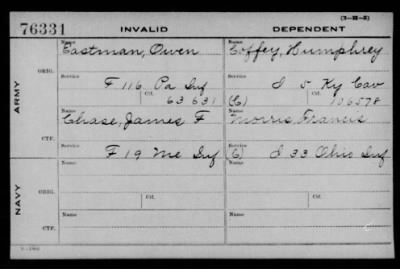 76331 INVALID DEPENDENT (3-II-2)
Name Name
Eastman, Owen Coffey, Humphrey
ARMY
ORIG. Service Service
F 116 Pa Inf I 5 Ky Cav
Ctf. Ctf.
63631 (C) 106578
Name Name
Chase, James F Morris Francis
CTF. Service Service
F 19 Me Inf (C) I 33 Ohio Inf
NAVY
ORIG. Name Name
Service Ctf. Service Ctf.
CTF. Name Name